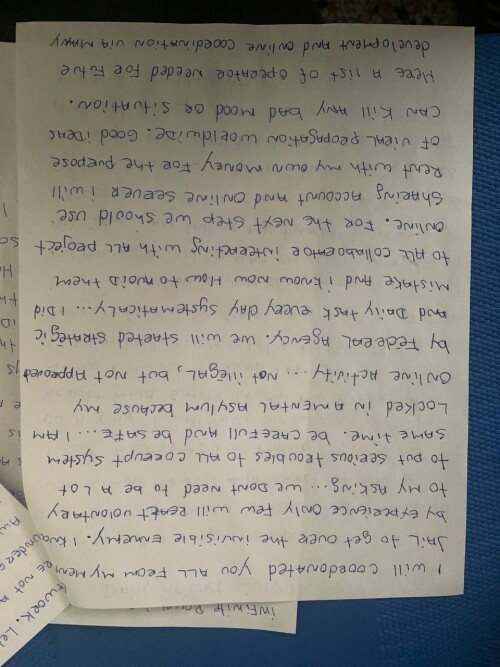 infinite
I will coordonated you ALL from my
JAIL to get over the invisible Ennemy. I know
by experience only few will react volontary
to my ASKING... we dont need to be A Lot
to put serious troubles to ALL corrupt system
same time. be carefull And be safe... I AM
Locked in A mental Asylum because my
online Activity... not illegal, but not Approved
by Federal Agency. we will started strategic
And Daily task every day systematicaly... I did
mistake And i know now How to avoid them
to ALL collaborator interacting with ALL project
online. For the next step we should use
sharing account And online server i will
Rent with my own money For the purpose
of viral propagation worldwide. Good ideas
can kill Any bad mood or situation.
Here A list of operator needed For Futur
development And online coordination via many